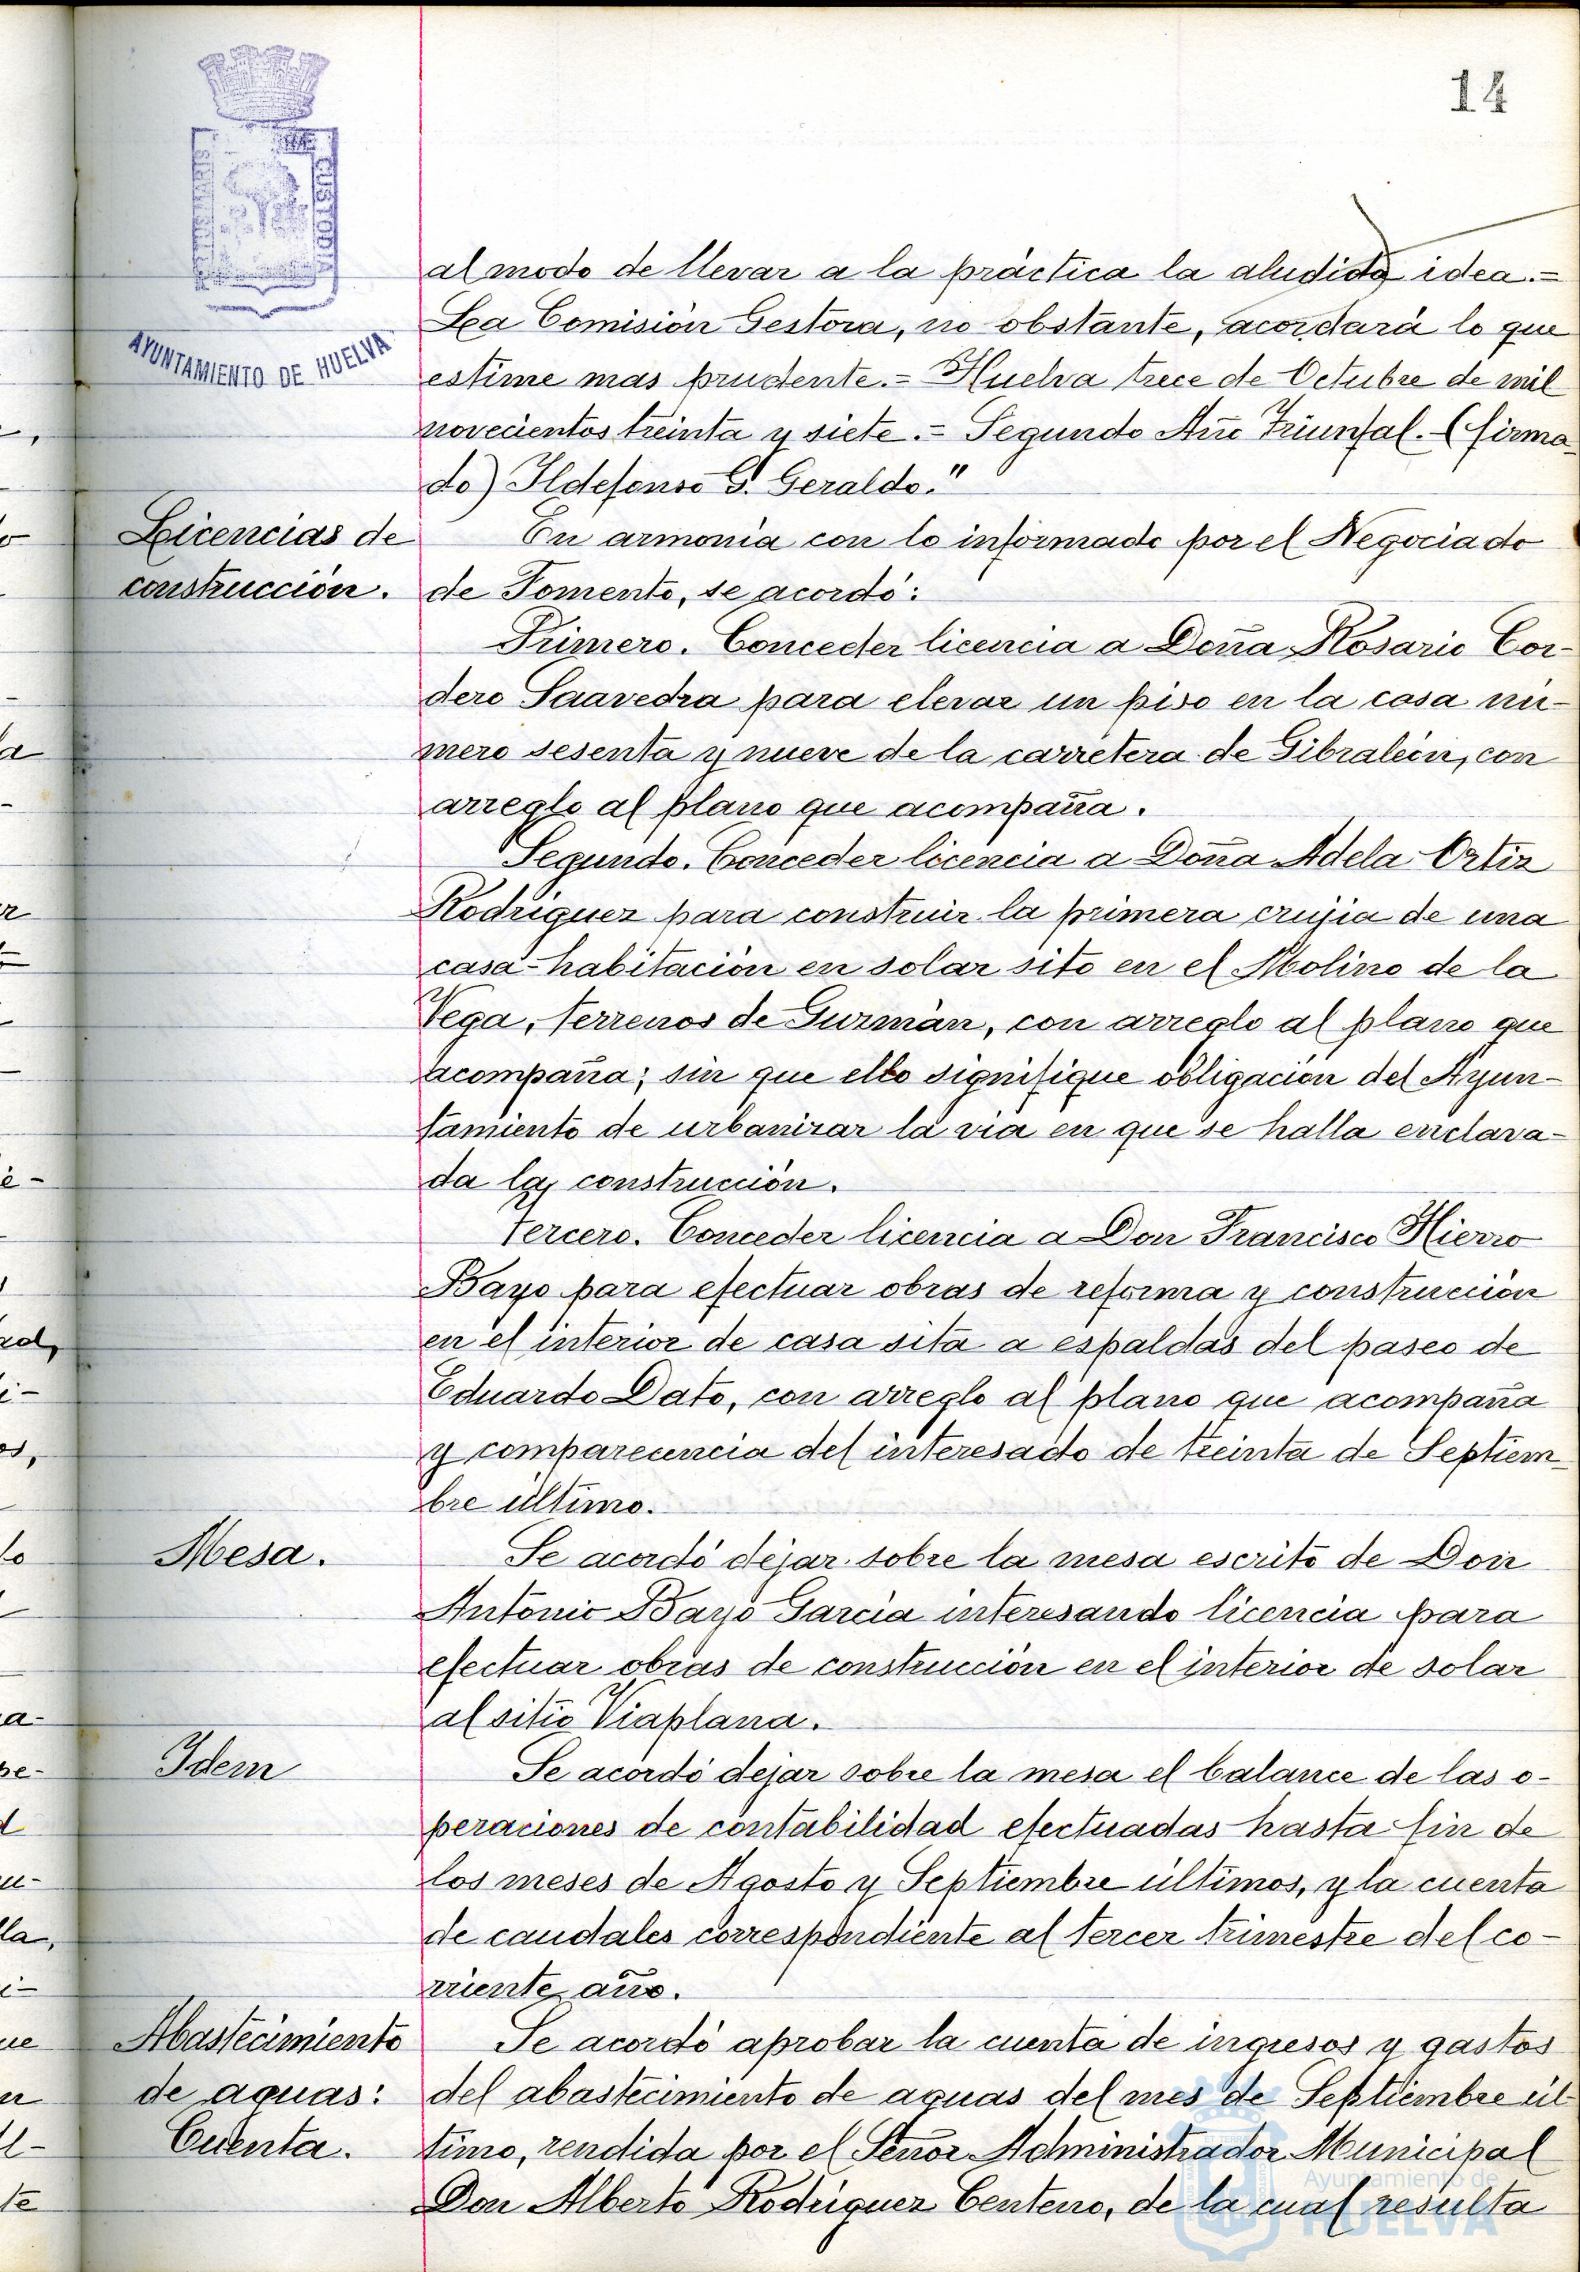 14
PORTUS MARIS
CUSTODIA
AYUNTAMIENTO DE HUELVA
al modo de llevar a la práctica la aludida idea.=
La Comisión Gestora, no obstante, acordará lo que
estime mas prudente.= Huelva trece de Octubre de mil
novecientos treinta y siete.= Segundo Año Triunfal.-(firma-
do) Ildefonso G. Geraldo."
Licencias de
construcción.
En armonía con lo informado por el Negociado
de Fomento, se acordó:
Primero. Conceder licencia a Doña Rosario Cor-
dero Saavedra para elevar un piso en la casa nú-
mero sesenta y nueve de la carretera de Gibraleón, con
arreglo al plano que acompaña.
Segundo. Conceder licencia a Doña Adela Ortiz
Rodríguez para construir la primera crujia de una
casa-habitación en solar sito en el Molino de la
Vega, terrenos de Guzmán, con arreglo al plano que
acompaña; sin que ello signifique obligación del Ayun-
tamiento de urbanizar la vía en que se halla enclava-
da la construcción.
Tercero. Conceder licencia a Don Francisco Hierro
Bayo para efectuar obras de reforma y construcción
en el interior de casa sita a espaldas del paseo de
Eduardo Dato, con arreglo al plano que acompaña
y comparecencia del interesado de treinta de Septiem-
bre último.
Mesa.
Se acordó dejar sobre la mesa escrito de Don
Antonio Bayo García interesando licencia para
efectuar obras de construcción en el interior de solar
al sitio Viaplana.
Idem
Se acordó dejar sobre la mesa el balance de las o-
peraciones de contabilidad efectuadas hasta fin de
los meses de Agosto y Septiembre últimos, y la cuenta
de caudales correspondiente al tercer trimestre del co-
rriente año.
Abastecimiento
de aguas:
Cuenta.
Se acordó aprobar la cuenta de ingresos y gastos
del abastecimiento de aguas del mes de Septiembre úl-
timo, rendida por el Señor Administrador Municipal
Don Alberto Rodríguez Centeno, de la cual resulta
Ayuntamiento de
HUELVA